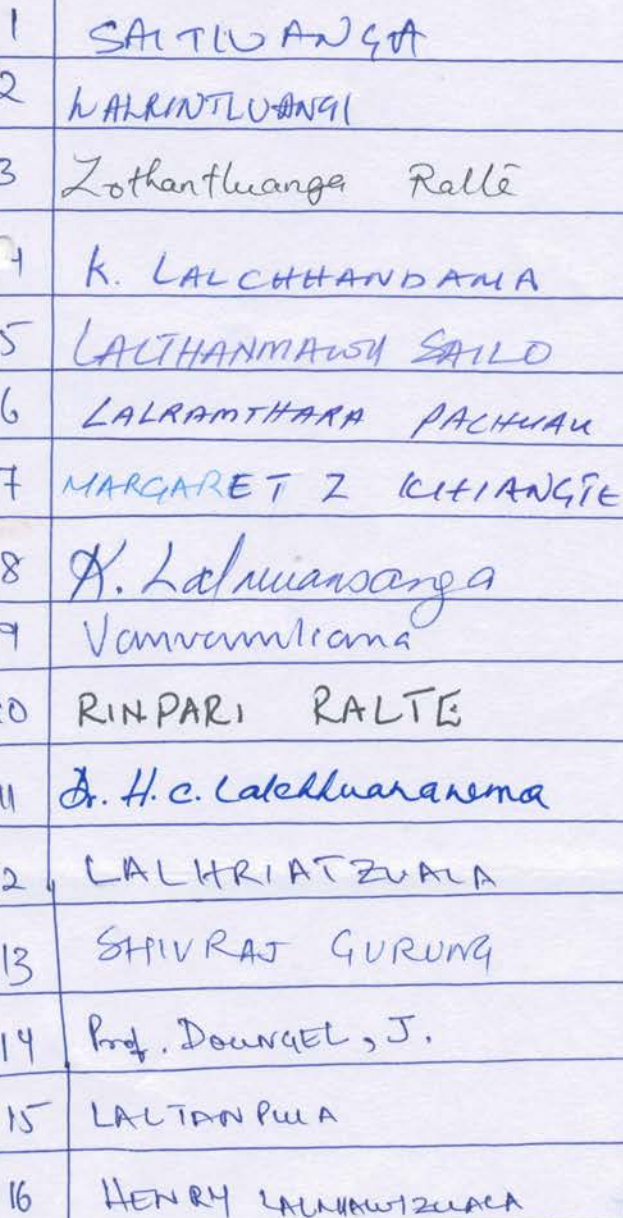 1 SAITLUANGA
2 LALRINTLUANGI
3 Zothantluanga Ralte
4 K. LALCHHANDAMA
5 LALTHANMAWII SAILO
6 LALRAMTHARA PACHUAU
7 MARGARET Z KHIANGTE
8 K. Lalnuansanga
9 Vanvamliana
10 RINPARI RALTE
11 Dr. H. C.
12 LALHRIATZUALA
13 SHIVRAJ GURUNG
14 Prof. DOUNGEL, J.
15 LALTANPUIA
16 HENRY